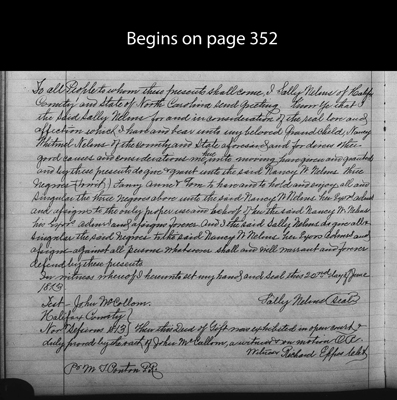 Begins on page 352
To all People to whom these presents shall come, I Sally Nelms of Halifax
County and State of North Carolina send greeting Know Ye that I
the said Sally Nelms for and in consideration of the real love and
affection which I have and bear unto my beloved Grand Child, Nancy
Whitmel Nelms of the County and State aforesaid and for divers other
good causes and considerations me here unto moving have given and granted
and by these presents do give & grant unto the said Nancy W Nelms three
Negroes Fanny Anne & Tom to have and to hold and enjoy all and
singular the three Negroes above unto the said Nancy W Nelms her
and assigns to the only proper use and behoof of her the said Nancy W. Nelms
her and assigns forever And I the said Sally Nelms do give all &
singular the said Negroes to the said Nancy W. Nelms her and
assigns against all persons whatsoever shall and will warrant and forever
defend by these presents
In witness whereof I hereunto set my hand and seal this 20th day of June
1813
Test - John McCollom. Sally Nelms (seal)
Halifax County
Nov Sessions 1813 Then this Deed of Gift was exhibited in open court &
duly proved by the oath of John McCollom, a witness & on motion
Witness Richard Eppes Clk